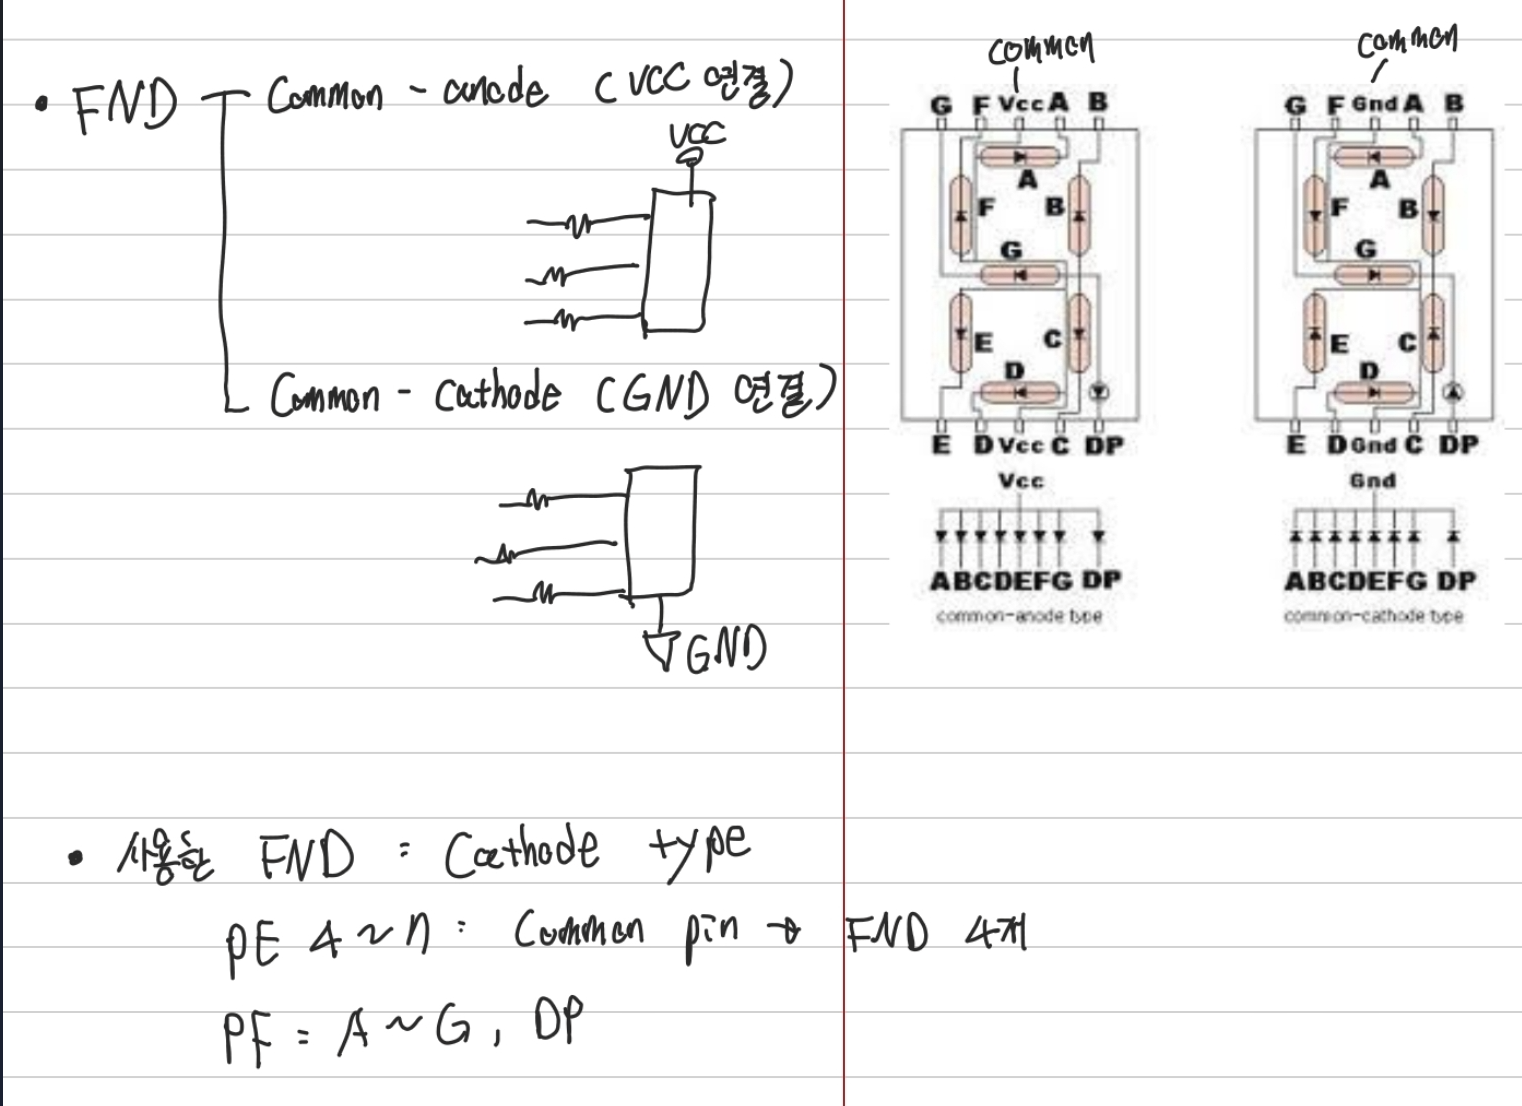 • FND Common - anode (VCC 연결)
VCC
Common - Cathode (GND 연결)
GND
common
G F Vcc A B
A
F B
G
E C
D
E D Vcc C DP
Vcc
ABCDEFG DP
common-anode type
common
G F Gnd A B
A
F B
G
E C
D
E D Gnd C DP
Gnd
ABCDEFG DP
common-cathode type
• 사용한 FND : Cathode type
PE 4 ~ 7 : Common pin → FND 4개
PF = A ~ G , DP